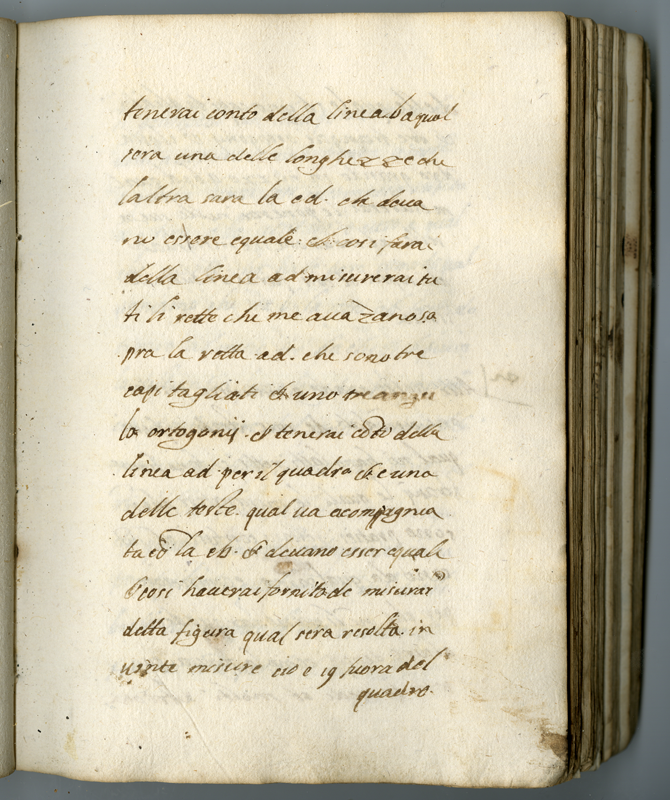 tenerai conto della linea.b.a qual
sera una delle longhezze che
laltra sara la c d. che deua
no essere equale. & cosi farai
della linea a d misurerai tu
ti li rette che me auāzano so
pra la retta a d. che sono tre
capi tagliati & uno treangu
lo ortogonij. & tenerai cōto della
linea a d per il quadro che una
delle teste. qual ua acompagnia
ta cō la c b. & deuano esser equale
& cosi hauerai fornito de misurar
detta figura qual sera resolta in
uinte misure cio e 19 fuora del
quadro.